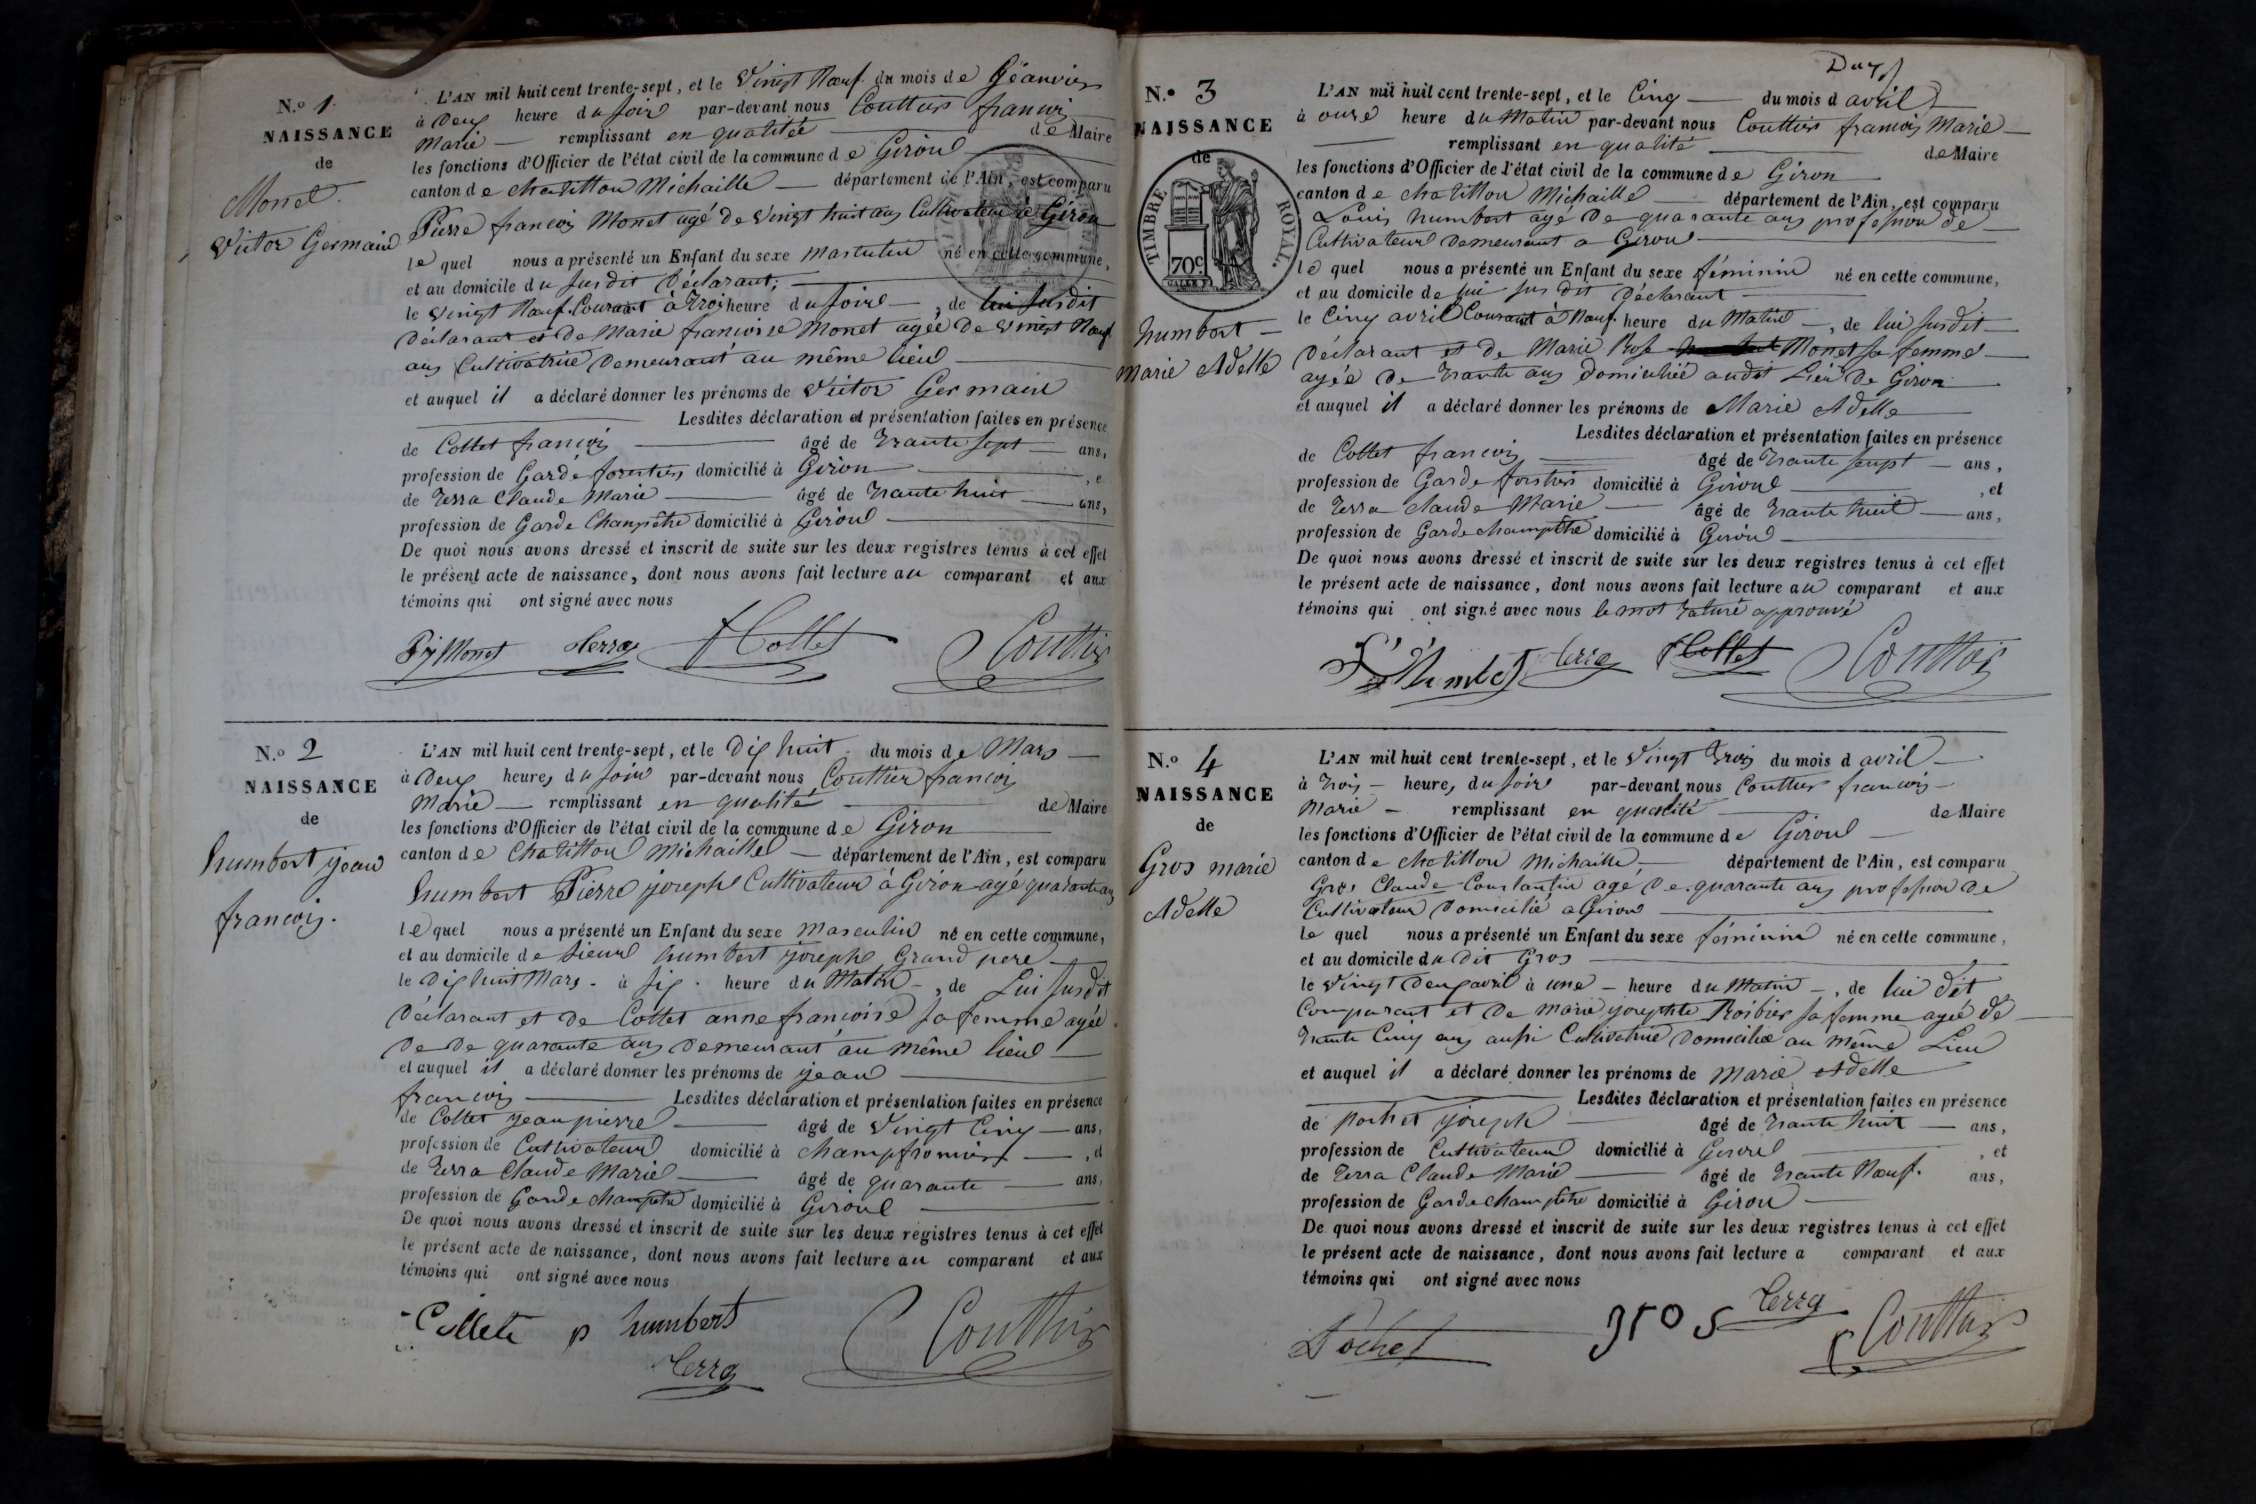 N.º 1
NAISSANCE
de
Monet
Victor Germain
L'AN mil huit cent trente-sept, et le vingt Noeuf du mois de Géanvier
à Deux heure du soir par-devant nous Couttier francois
Marie remplissant en qualitée de Maire
les fonctions d'Officier de l'état civil de la commune de Giron
canton de chatillon Michaille département de l'Ain, est comparu
Pierre francois Monet agé de vingt huit ans Cultivateur à Giron
le quel nous a présenté un Enfant du sexe masculin né en cette commune,
et au domicile du susdit Déclarant;
le vingt Noeuf Courant à Trois heure du soire, de lui susdit
Déclarant et de Marie francoise Monet agée de vingt Noeuf
ans Cultivatrice Demeurant au même lieu
et auquel il a déclaré donner les prénoms de Victor Germain
Lesdites déclaration et présentation faites en présence
de Collet francois âgé de Trante sept ans,
profession de Garde forestier domicilié à Giron, e
de Terra Claude Marie âgé de Trante huit ans,
profession de Garde Champêtre domicilié à Giron
De quoi nous avons dressé et inscrit de suite sur les deux registres tenus à cet effet
le présent acte de naissance, dont nous avons fait lecture au comparant et aux
témoins qui ont signé avec nous
Pf Monet Terra f Collet Couttier
N.º 2
NAISSANCE
de
humbert jean
francois.
L'AN mil huit cent trente-sept, et le Dix huit du mois de Mars
à Deux heures du soir par-devant nous Couttier francois
Marie remplissant en qualité de Maire
les fonctions d'Officier de l'état civil de la commune de Giron
canton de Chatillon Michaille département de l'Ain, est comparu
humbert Pierre joseph Cultivateur à Giron agé quarante ans
le quel nous a présenté un Enfant du sexe masculin né en cette commune,
et au domicile de sieur humbert joseph Grand pere
le Dix huit Mars à six heure du Matin, de Lui susdit
Déclarant et de Collet anne francoise sa femme agée
De De quarante ans Demeurant au même lieu
et auquel il a déclaré donner les prénoms de jean
francois Lesdites déclaration et présentation faites en présence
de Collet jean pierre âgé de Vingt Cinq ans,
profession de Cultivateur domicilié à champfromier, et
de Terra Claude Marie âgé de quarante ans,
profession de Garde champetre domicilié à Giron
De quoi nous avons dressé et inscrit de suite sur les deux registres tenus à cet effet
le présent acte de naissance, dont nous avons fait lecture au comparant et aux
témoins qui ont signé avec nous
Collete p humbert Couttier
Terra
Deux
N.º 3
NAISSANCE
de
TIMBRE ROYAL.
70c
humbert
Marie Adelle
L'AN mil huit cent trente-sept, et le Cinq du mois d avril
à onze heure du Matin par-devant nous Couttier francois Marie
remplissant en qualité de Maire
les fonctions d'Officier de l'état civil de la commune de Giron
canton de chatillon Michaille département de l'Ain, est comparu
Louis humbert agé De quarante ans profession de
Cultivateur Demeurant a Giron
le quel nous a présenté un Enfant du sexe féminin né en cette commune,
et au domicile de lui sus dit Déclarant
le Cinq avril Courant à Nauf heure du Matin, de lui susdit
Déclarant et de Marie Rose Monet sa femme
agée De Trante ans Domiciliée audit Lieu De Giron
et auquel il a déclaré donner les prénoms de Marie Adelle
Lesdites déclaration et présentation faites en présence
de Collet francois âgé de Trante seupt ans,
profession de Garde forstier domicilié à Giron, et
de Terra claude Marie âgé de Trante huit ans,
profession de Garde champêtre domicilié à Giron
De quoi nous avons dressé et inscrit de suite sur les deux registres tenus à cet effet
le présent acte de naissance, dont nous avons fait lecture au comparant et aux
témoins qui ont signé avec nous le mot raturé approuvé
Terra f Collet Couttier
N.º 4
NAISSANCE
de
Gros marie
Adelle
L'AN mil huit cent trente-sept, et le Vingt Trois du mois d avril
à Trois heures du soire par-devant nous Couttier francois
Marie remplissant en qualité de Maire
les fonctions d'Officier de l'état civil de la commune de Giron
canton de chatillon Michaille département de l'Ain, est comparu
Gros Claude Constantin agé De quarante ans profession De
Cultivateur Domicilié a Giron
le quel nous a présenté un Enfant du sexe féminin né en cette commune,
et au domicile du Dit Gros
le Vingt Deux avril à une heure du Matin, de lui dit
Comparant et De marie josephte Roibier sa femme agée de
Trante Cinq ans aussi Cultivatrice Domiciliée au même Lieu
et auquel il a déclaré donner les prénoms de Marie Adelle
Lesdites déclaration et présentation faites en présence
de pochet joseph âgé de Trante huit ans,
profession de Cultivateur domicilié à Giron, et
de Terra Claude Marie âgé de Trante Noeuf. ans,
profession de Garde champêtre domicilié à Giron
De quoi nous avons dressé et inscrit de suite sur les deux registres tenus à cet effet
le présent acte de naissance, dont nous avons fait lecture a comparant et aux
témoins qui ont signé avec nous
Pochet gros Terra Couttier